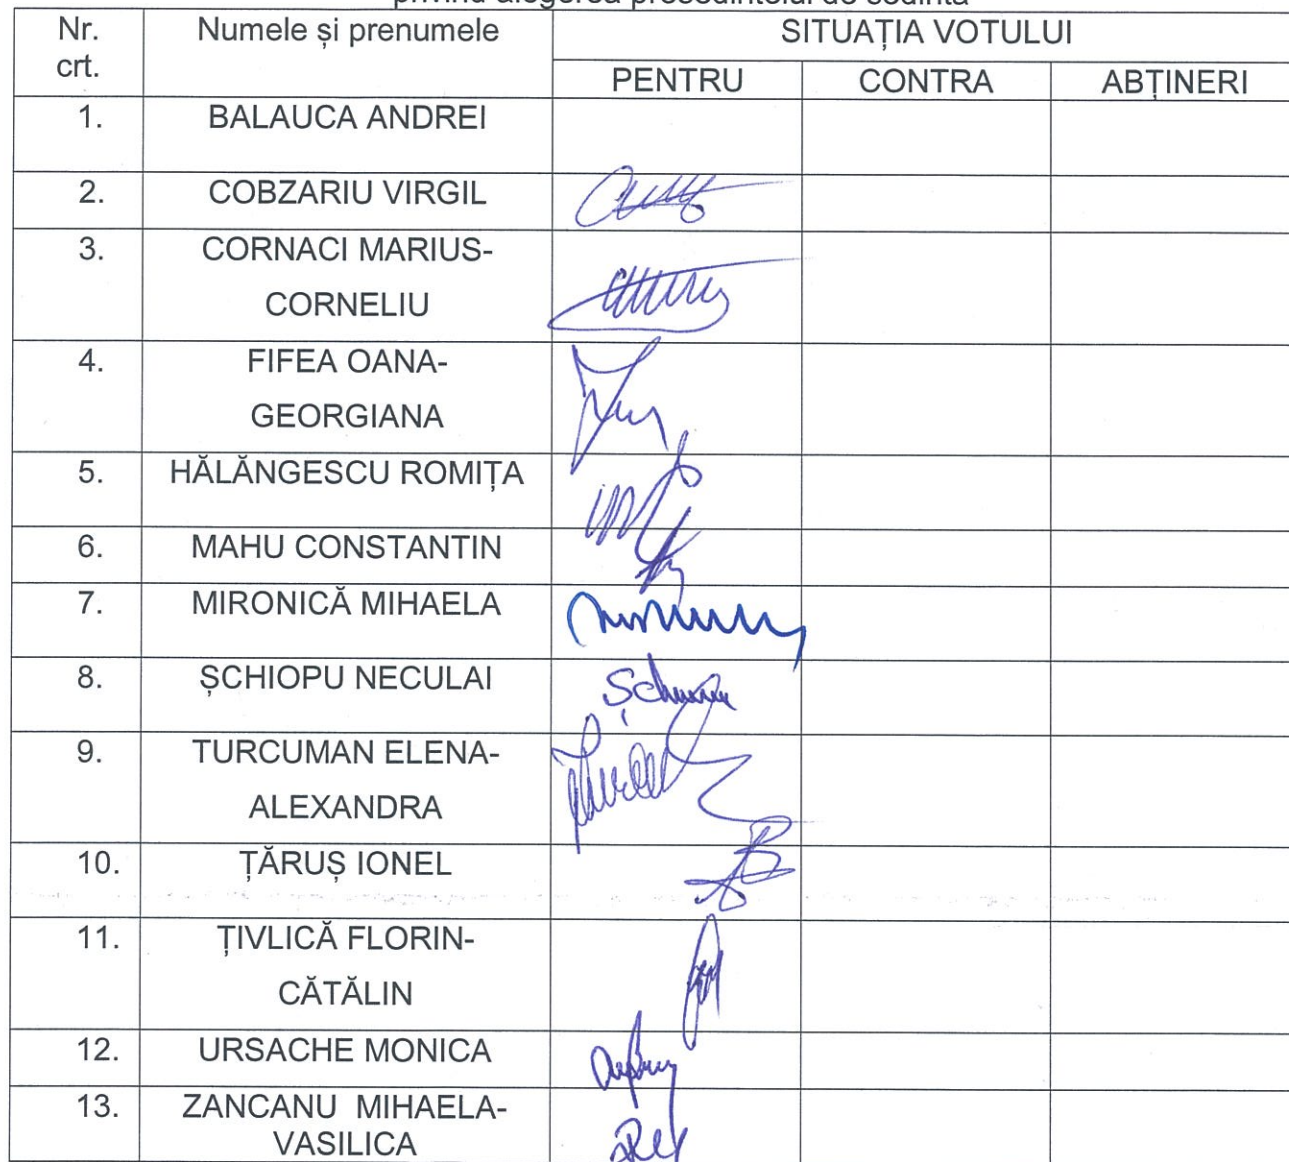 privind alegerea presedintelui de sedinta
Nr. crt. Numele și prenumele SITUAȚIA VOTULUI
PENTRU CONTRA ABȚINERI
1. BALAUCA ANDREI
2. COBZARIU VIRGIL
3. CORNACI MARIUS-
CORNELIU
4. FIFEA OANA-
GEORGIANA
5. HĂLĂNGESCU ROMIȚA
6. MAHU CONSTANTIN
7. MIRONICĂ MIHAELA
8. ȘCHIOPU NECULAI
9. TURCUMAN ELENA-
ALEXANDRA
10. ȚĂRUȘ IONEL
11. ȚIVLICĂ FLORIN-
CĂTĂLIN
12. URSACHE MONICA
13. ZANCANU MIHAELA-
VASILICA